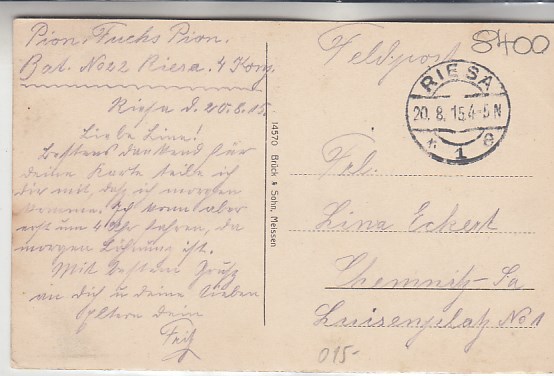 Pion. Fuchs Pion.
Bat. No 22 Riesa. 4 Kom.
Riesa d. 20.8.15.
Liebe Lina!
Bestens dankend für
deine Karte teile ich
dir mit, daß ich morgen
komme. Ich kann aber
erst um 4 Uhr fahren, da
morgen Löhnung ist.
Mit besten Grüße
an dich u deine lieben
Eltern dein
Fritz
14570 Brück & Sohn, Meissen
Feldpost
8400
RIESA
20. 8. 15. 4-5 N
* 1 e
Frl.
Lina Eckert
Chemnitz-Sa
Luisenplatz No 1
015-